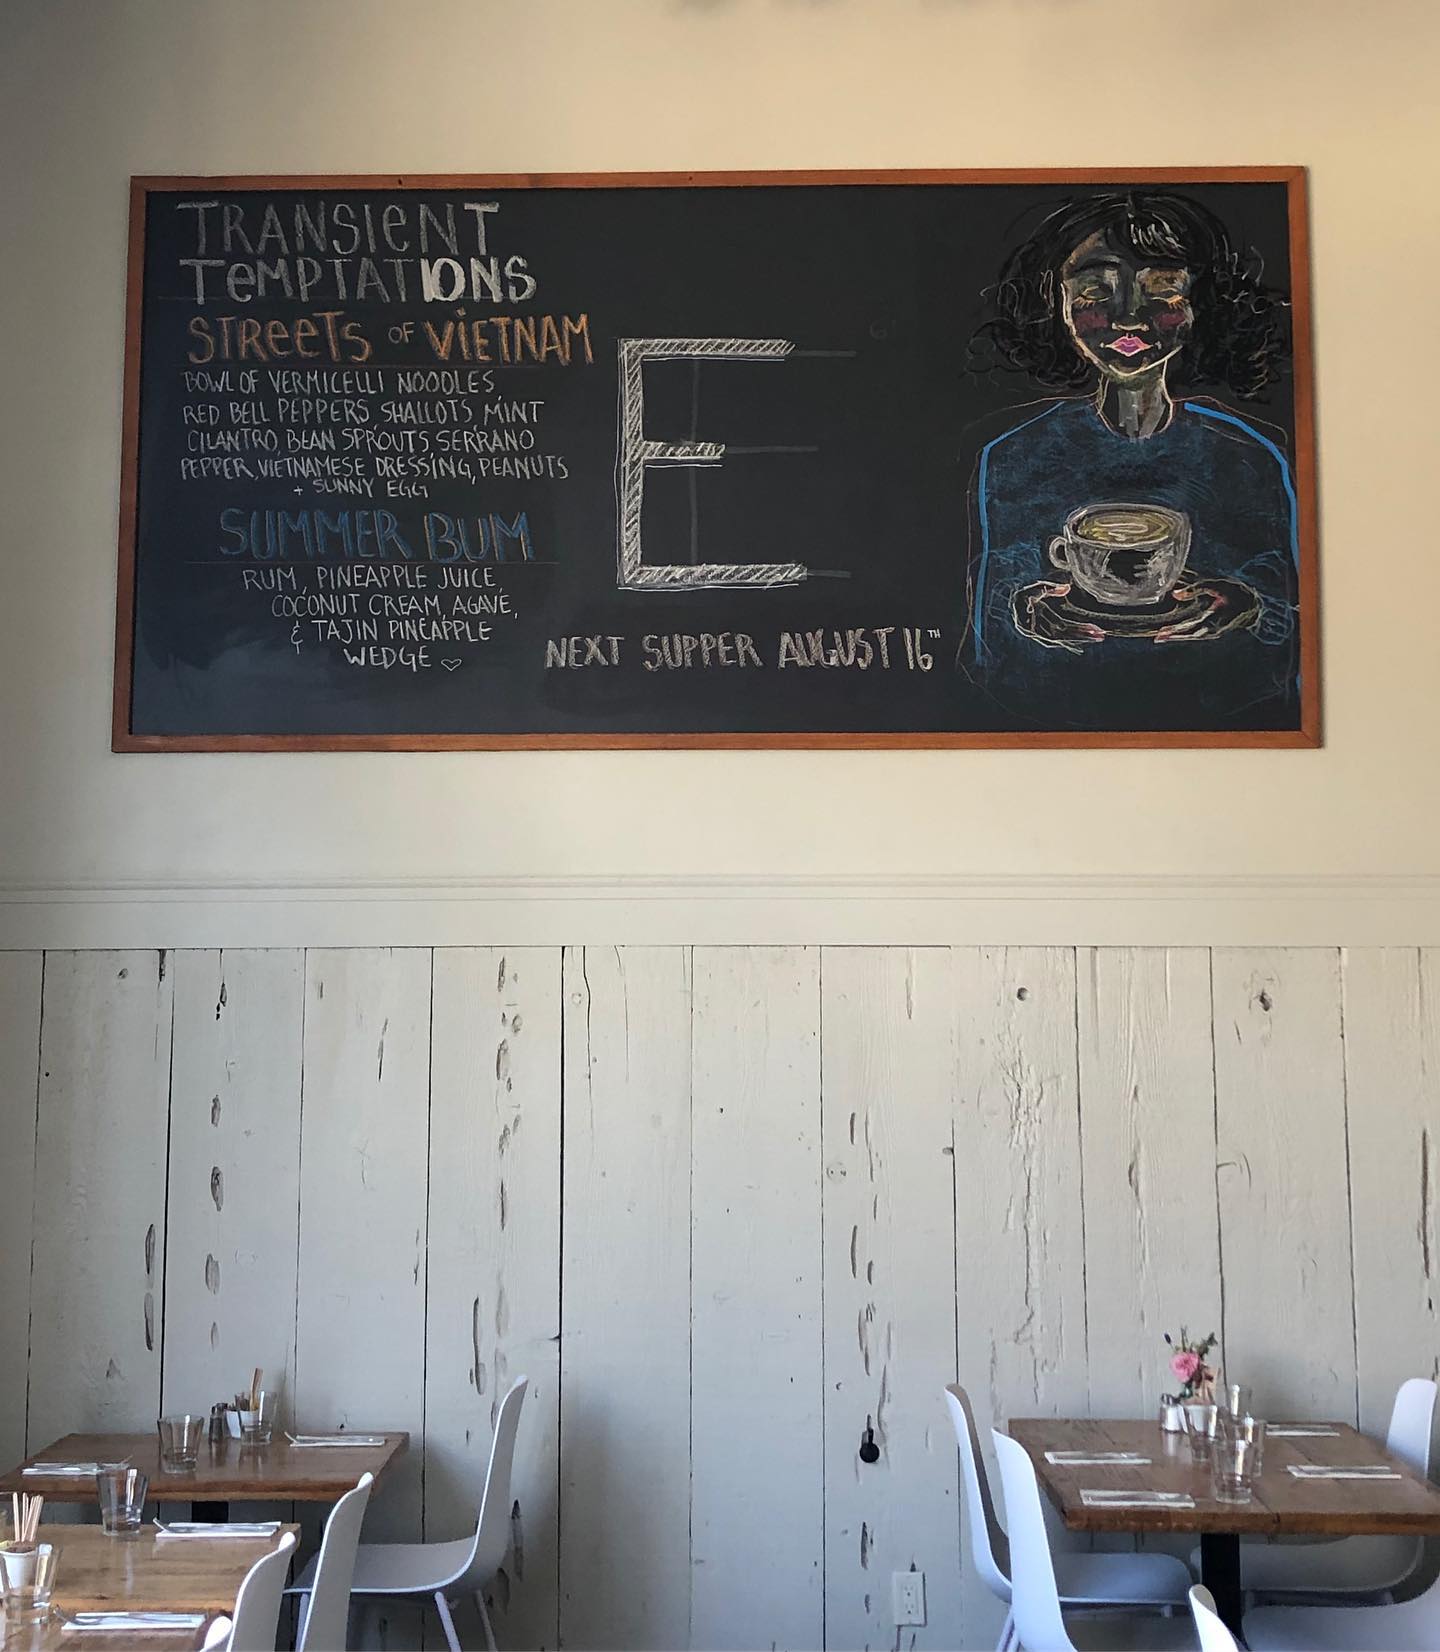 TRANSIENT
TEMPTATIONS
STREETS OF VIETNAM
BOWL OF VERMICELLI NOODLES
RED BELL PEPPERS SHALLOTS MINT
CILANTRO, BEAN SPROUTS, SERRANO
PEPPER, VIETNAMESE DRESSING, PEANUTS
+ SUNNY EGG
SUMMER BUM
RUM, PINEAPPLE JUICE
COCONUT CREAM, AGAVE,
& TAJIN PINEAPPLE
WEDGE ♡
E
NEXT SUPPER AUGUST 16TH